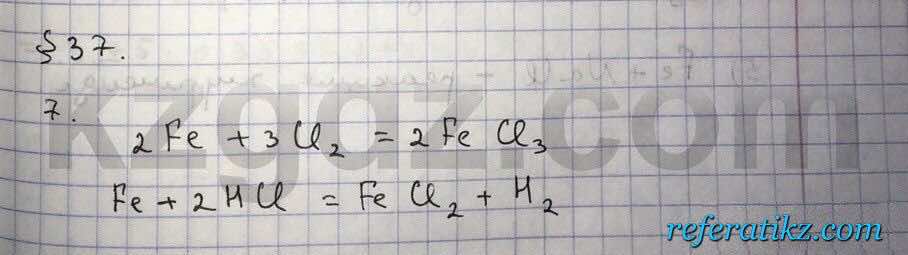 § 37.
7.
2Fe + 3Cl₂ = 2FeCl₃
Fe + 2HCl = FeCl₂ + H₂
kzgdz.com
referatikz.com